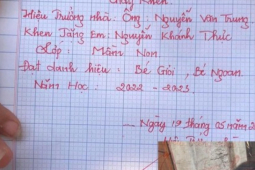 Giấy Khen.
Hiệu Trưởng nhà: Ông Nguyễn Văn Trung
Khen Tặng Em: Nguyễn Khánh Thức
Lớp: Mầm Non.
Đạt danh hiệu: Bé Giỏi, Bé Ngoan.
Năm Học: 2022 - 2023.
Ngày 19 tháng 05 năm 2